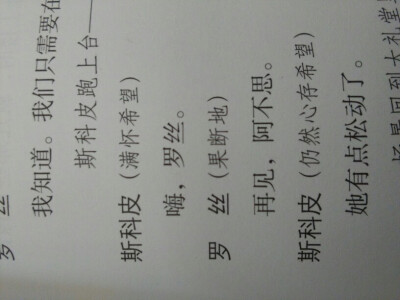 罗 丝
我知道。我们只需要在
斯科皮跑上台——
斯科皮（满怀希望）
嗨，罗丝。
罗 丝（果断地）
再见，阿不思。
斯科皮（仍然心存希望）
她有点松动了。
场景回到大礼堂